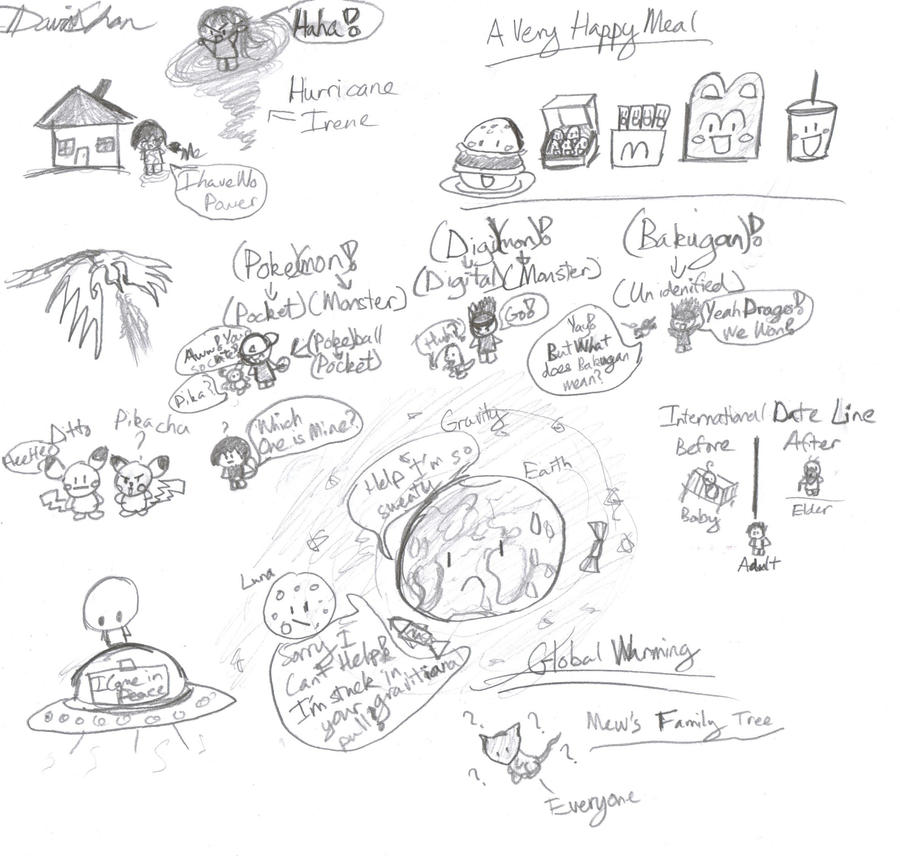 David Chan
Haha!
Hurricane
Irene
Me
I have No
Power
A Very Happy Meal
M
(Poke)(mon)!
(Pocket)(Monster)
Aww! You
so cute!
Pika?
(Poke)ball
(Pocket)
(Digi)(mon)!
(Digital)(Monster)
Huh?
Go!
(Bakugan)!
(Unidenified)
Yay!
But What
does Bakugan
mean?
Yeah Drago!
We Won!
HeeHee
Ditto
Pikacha
?
?
Which
One is Mine?
Gravity
Earth
Help I'm so
sweaty
International Date Line
Before
After
Baby
Elder
Adult
Luna
Sorry I
Can't Help!
I'm stuck in
your gravitiona
pull!
I Come in
Peace
Global Warming
Mew's Family Tree
? ? ? ?
Everyone